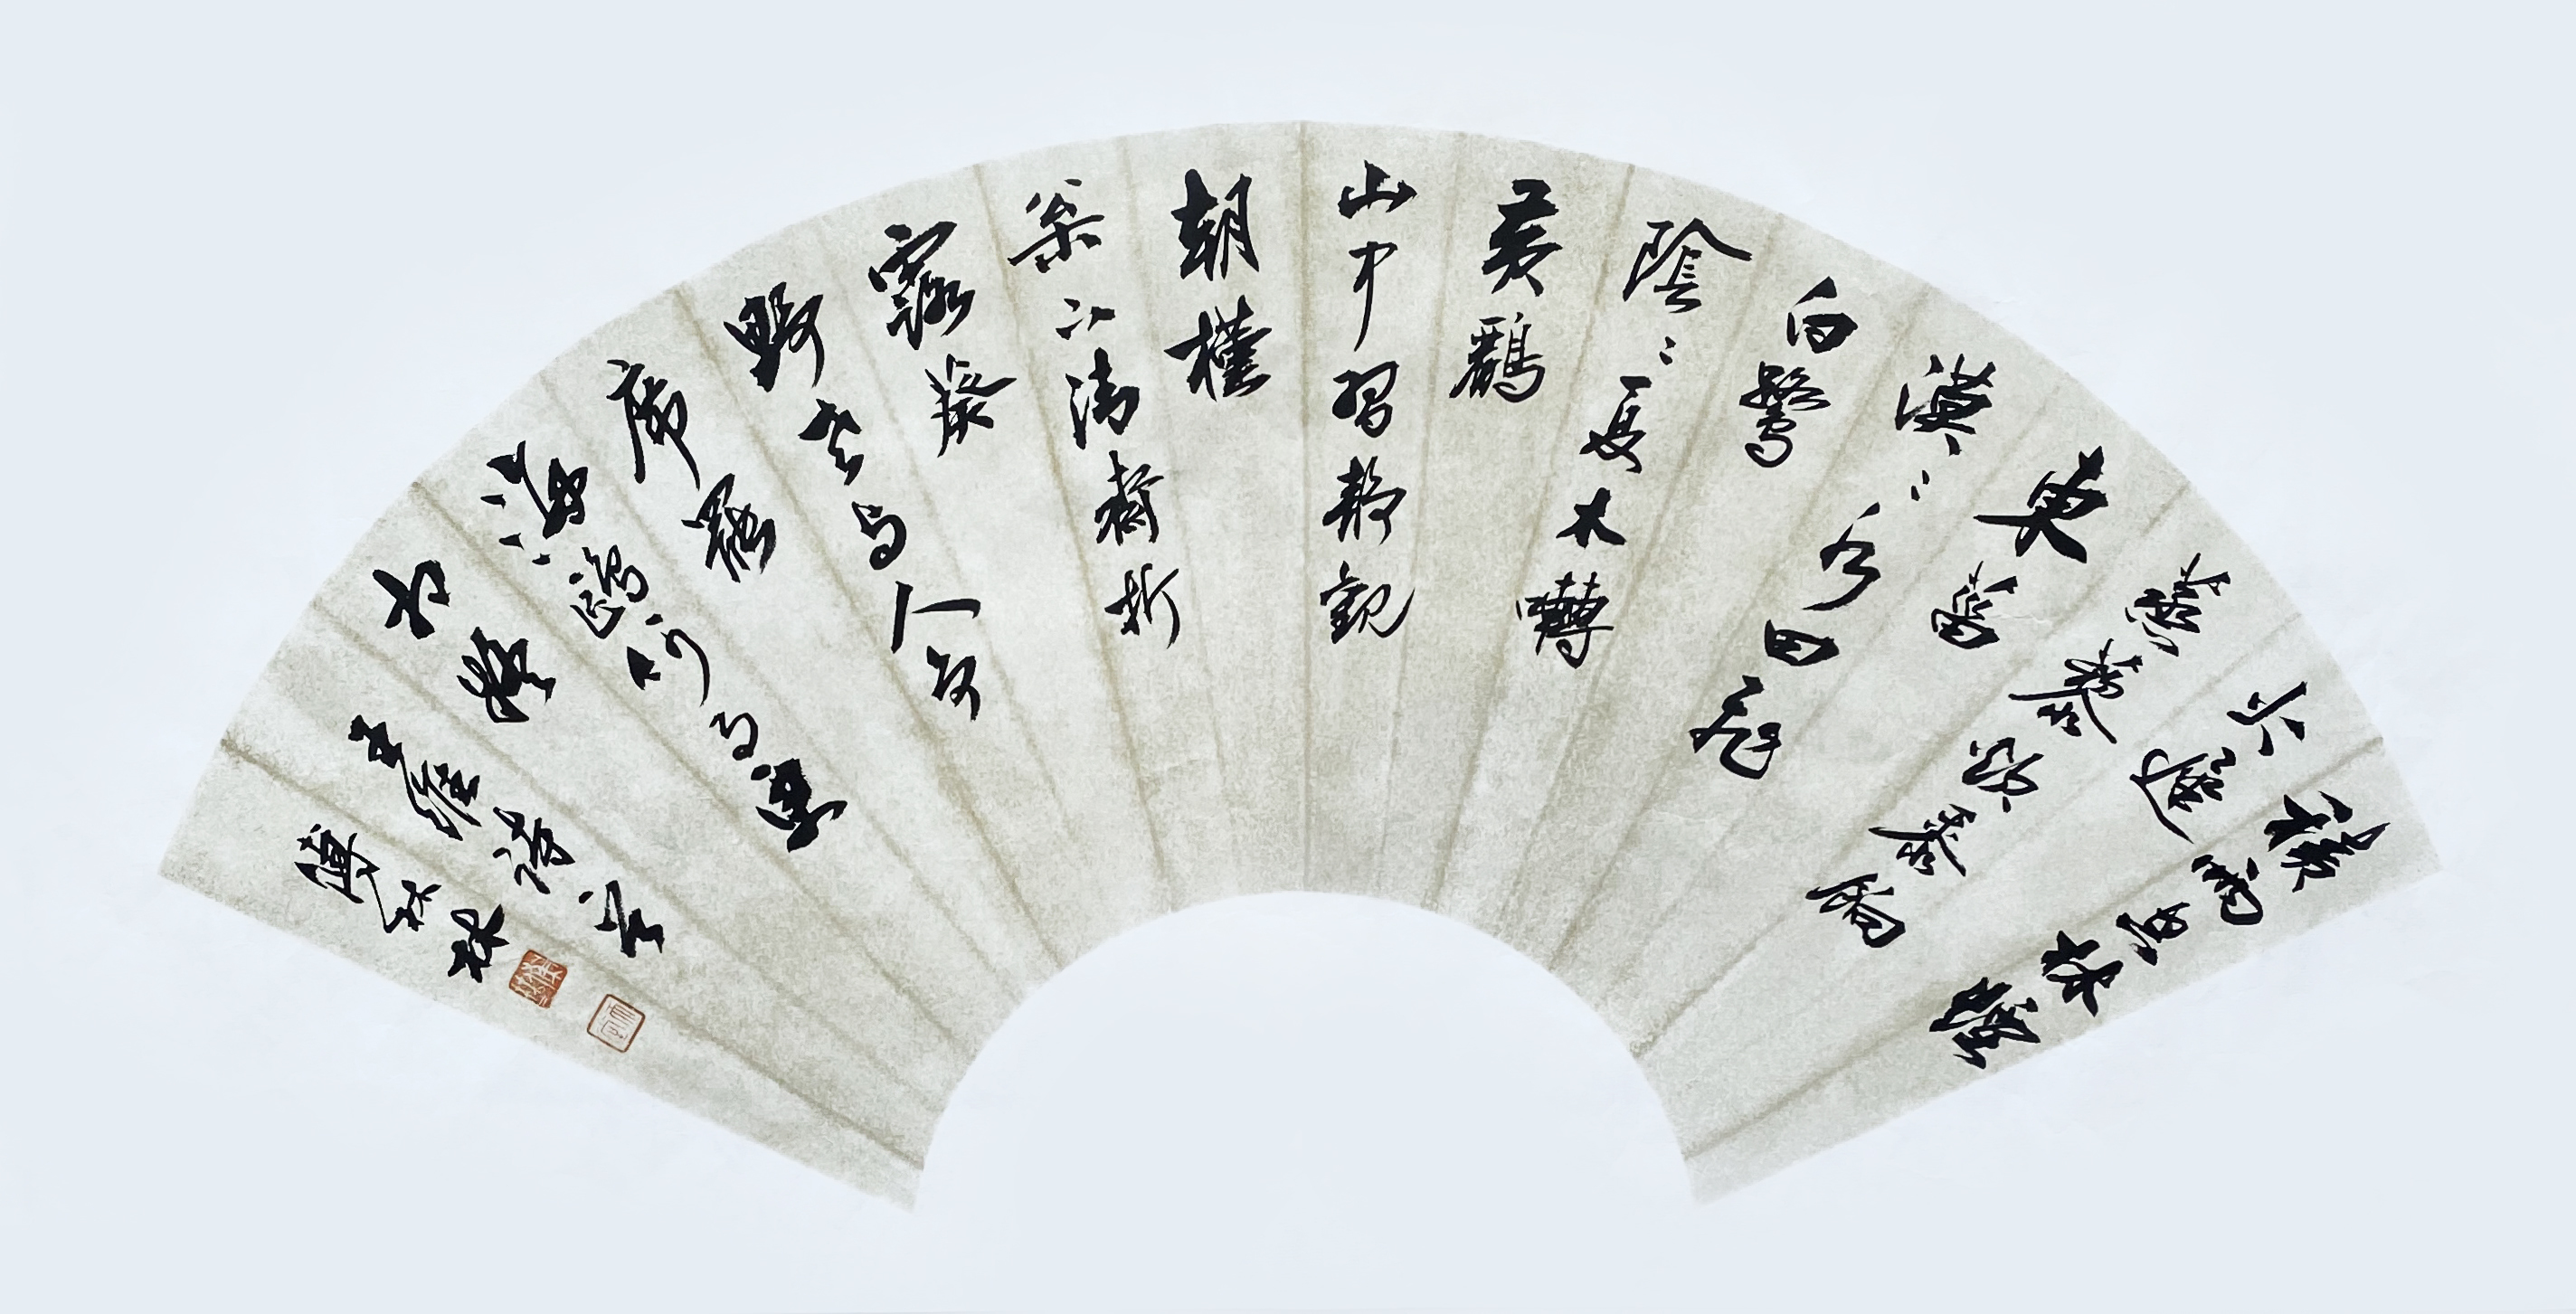 積雨空林煙
火遲
蒸藜炊黍餉
東菑
漠漠水田飛
白鷺
陰陰夏木囀
黄鸝
山中習靜觀
朝槿
松下清齋折
露葵
野老與人爭
席罷
海鷗何事更
相疑
王維詩